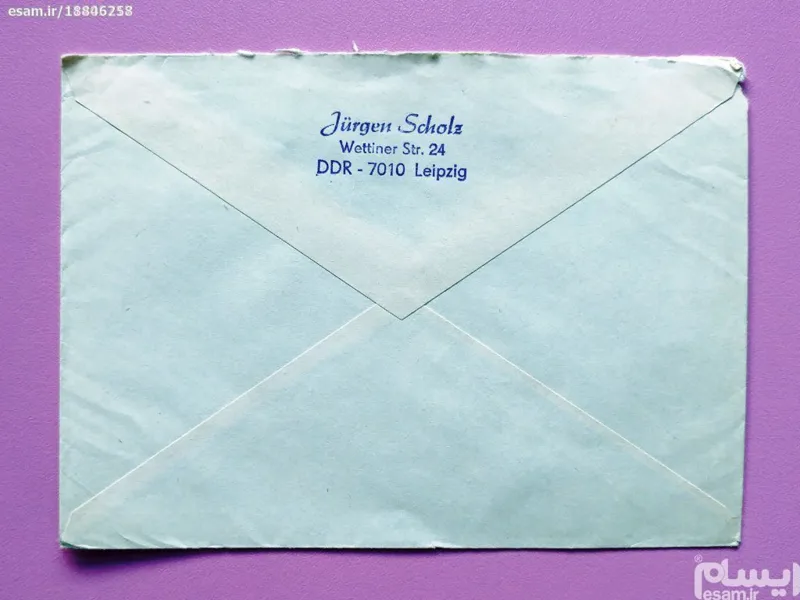 esam.ir/18846258
Jürgen Scholz
Wettiner Str. 24
DDR - 7010 Leipzig
ایسام®
esam.ir